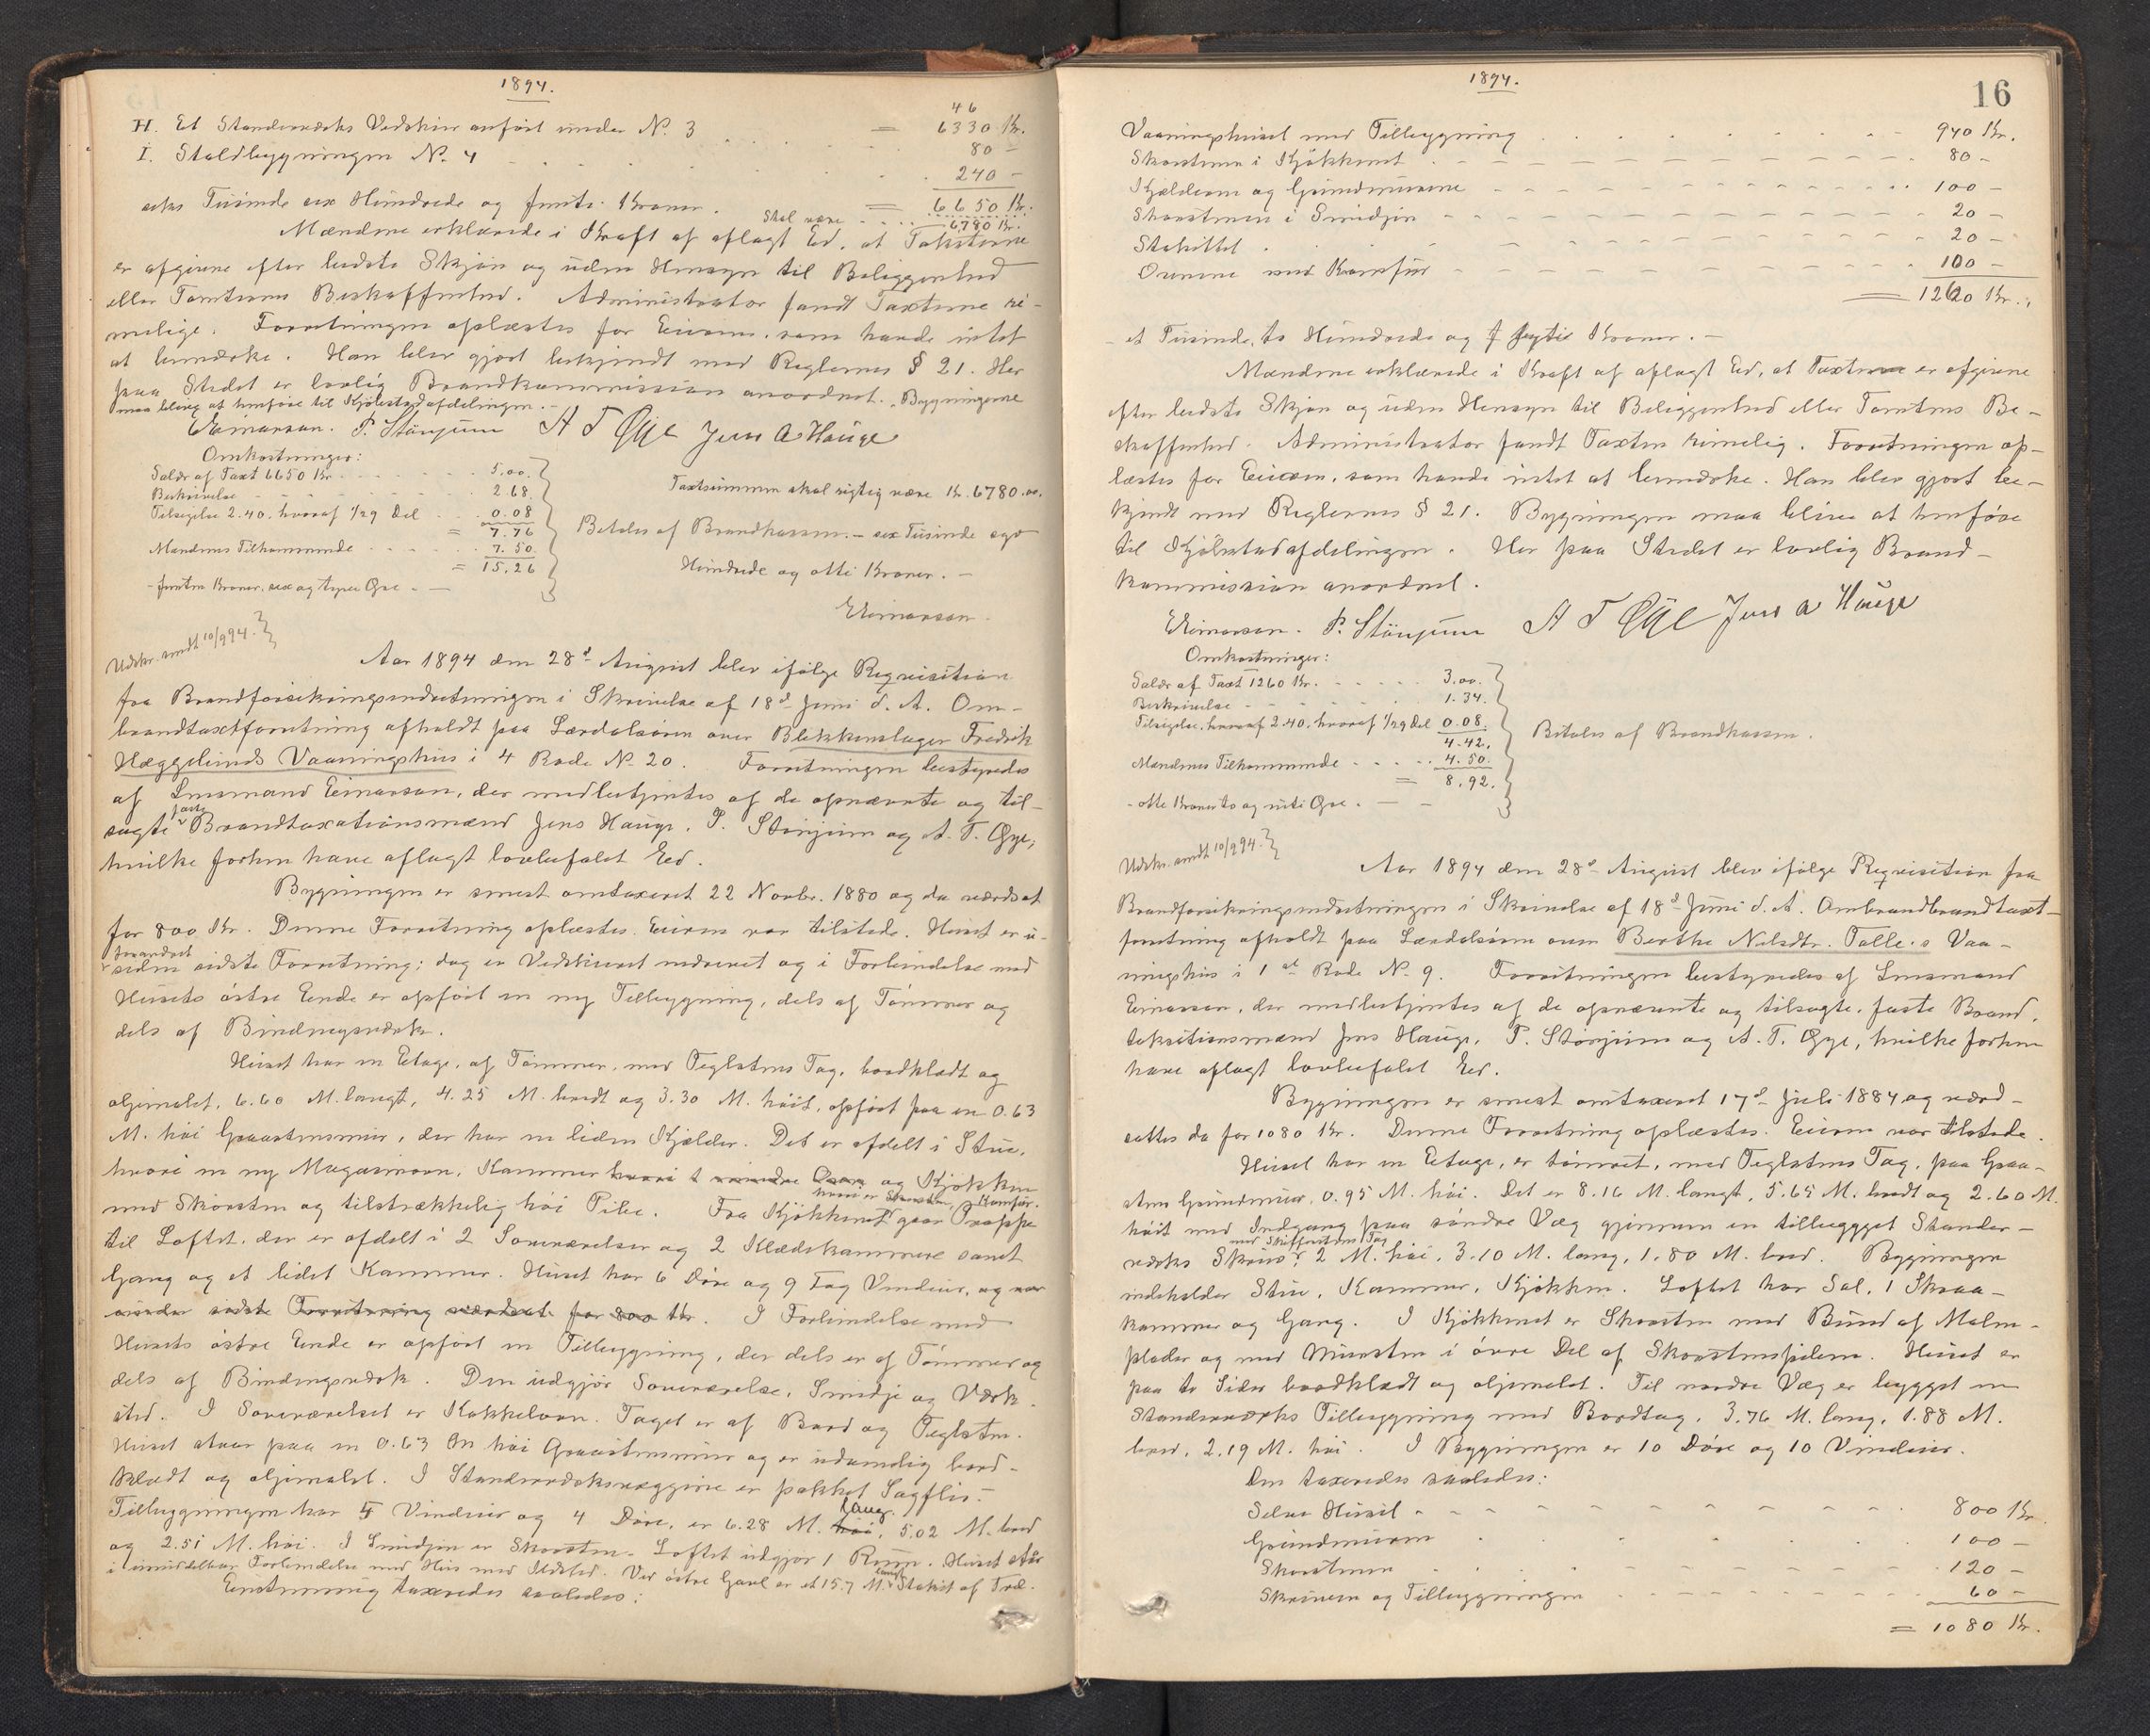 1894.
H. Et Standerværks Vedskiur anført under N. 3 . . . = 6330 Kr.
46
80 -
I. Staldbygningen N. 4 - . . . . 240 -
seks Tusinde sex Hundrede og femti Kroner. = 6650 Kr.
Skal være - . . . . 6780 Kr.
Mændene erklærede i Kraft af aflagt Ed, at Taksterne
er afgivne efter bedste Skjøn og uden Hensyn til Beliggenhed
eller Tomtens Beskaffenhed. Administrator fandt Taxterne ri-
melige. Forretningen oplæstes for Eieren, som havde intet
at bemærke. Han blev gjort bekjendt med Reglernes § 21. Her
paa Stedet er lovlig Brandkommission anordnet. Bygningerne
maa blive at henføre til Kjøbstadafdelingen. -
Eeinarsen. P. Stönjum A T Øye Jens A Hauge
Omkostninger:
Salær af Taxt 6650 Kr. . . . . . 5.00.
Beskrivelse - - - - 2.68.
Tilsigelse 2.40. hvoraf 1/29 Del . . 0.08
= 7.76
Mændenes Tilkommende . . . . 7.50.
= 15.26
- femten Kroner, sex og tyve Øre . -
Taxtsummen skal rigtig være Kr. 6780.00.
Betales af Brandkassen. - sex Tusinde syv
Hundrede og otti Kroner. -
Eeinarsen.
Udskr. sendt 10/9 94.
Aar 1894 den 28d August blev ifølge Requisition
fra Brandforsikringsindretningen i Skrivelse af 18d Juni d. A. Om-
brandtaxtforretning afholdt paa Lærdalsören over Blikkenslager Fredrik
Hæggelunds Vaaningshus i 4 Rode N. 20. Forretningen bestyredes
af Lensmand Eeinarsen, der medbetjentes af de opnævnte og til-
faste
sagte Brandtaxationsmænd Jens Hauge, P. Stönjum og A. T. Øye,
hvilke forhen have aflagt lovbefalet Eed.
Bygningen er senest omtaxeret 22 Novbr. 1880 og da værdsat
for 800 Kr. Denne Forretning oplæstes. Eieren var tilstede. Huset er u-
forandret
siden sidste Forretning; dog er Vedskiuret nedrevet og i Forbindelse med
Husets östre Ende er opfört en ny Tilbygning, dels af Tömmer og
dels af Bindingsværk.
Huset har en Etage, af Tömmer, med Teglstens Tag, bordklædt og
oljemalet, 6.60 M. langt, 4.25 M. bredt og 3.30 M. höit, opfört paa en 0.63
M. höi Graastensmur, der har en liden Kjælder. Det er afdelt i Stue,
hvori en ny Magasinovn, Kammer hvori 1 mindre Ovn og Kjökken
hvori er Skorsten, Komfur.
med Skorsten og tilstrækkelig höi Pibe. Fra Kjökkenet gaar Trappe
til Loftet, der er afdelt i 2 Soveværelser og 2 Klædeskammere samt
Gang og et lidet Kammer. Huset har 6 Döre og 9 Fag Vinduer, og var
under sidste Forretning værdsat for 800 Kr. I Forbindelse med
Husets östre Ende er opfört en Tilbygning, der dels er af Tömmer og
dels af Bindingsværk. Den udgjör Soveværelse, Smedje og Værk-
sted. I Soveværelset er Kakkelovn. Taget er af Bord og Teglsten.
Huset staar paa en 0.63 M höi Graastensmur og er udvendig bord-
klædt og oljemalet. I Standerværksvæggene er pakket Sagflis.
lang
Tilbygningen har 5 Vinduer og 4 Döre, er 6.28 M. höi, 5.02 M. bred
og 2.51 M. höi. I Smedjen er Skorsten. Loftet udgjör 1 Rum. Huset står
i umiddelbar Forbindelse med Hus med Ildsted. Ved östre Gavl er et 15.7 M. langt Stakit af Træ.
Eiendommen taxeredes saaledes:
1894.
16
Vaaningshuset med Tilbygning . . . . . 940 Kr.
Skorstenen i Kjökkenet . - - - - 80 -
Kjælderen og Grundmurene - - - - 100 -
Skorstenen i Smidjen - - - - 20 -
Stakittet . - - - - 20 -
Ovnene med Komfur - - - - 100 -
= 1260 Kr.
- et Tusinde, to Hundrede og sexti Kroner. -
Mændene erklærede i Kraft af aflagt Ed, at Taxterne er afgivne
efter bedste Skjøn og uden Hensyn til Beliggenhed eller Tomtens Be-
skaffenhed. Administrator fandt Taxten rimelig. Forretningen op-
læstes for Eieren, som havde intet at bemærke. Han blev gjort be-
kjendt med Reglernes § 21. Bygningen maa blive at henföre
til Kjöbstadafdelingen. Her paa Stedet er lovlig Brand-
kommission anordnet.
Eeinarsen. P. Stönjum A T Øye Jens A Hauge
Omkostninger:
Salær af Taxt 1260 Kr. - - - - 3.00.
Beskrivelse - - - - 1.34.
Tilsigelse, hvoraf 2.40. hvoraf 1/29 Del 0.08.
4.42.
Mændenes Tilkommende - - - 4.50.
= 8.92.
- otte Kroner to og niti Øre. - -
Betales af Brandkassen.
Udskr. sendt 10/9 94.
Aar 1894 den 28d August blev ifölge Requisition fra
Brandforsikringsindretningen i Skrivelse af 18d Juni d. A. Ombrandbrandtaxt-
forretning afholdt paa Lærdalsören over Berthe Nilsdtr. Talle's Vaa-
ningshus i 1ste Rode N. 9. Forretningen bestyredes af Lensmand
Eeinarsen, der medbetjentes af de opnævnte og tilsagte, faste Brand-
taksationsmænd Jens Hauge, P. Stönjum og A. T. Øye, hvilke forhen
have aflagt lovbefalet Eed.
Bygningen er senest omtaxeret 17d Juli 1884 og værd-
sattes da for 1080 Kr. Denne Forretning oplæstes. Eieren var tilstede.
Huset har en Etage, er tömret, med Teglstens Tag, paa Graa-
stens Grundmur, 0.95 M. höi. Det er 8.16 M. langt, 5.65 M. bredt og 2.60 M.
höit med Indgang paa söndre Væg gjennem en tilbygget Stander-
med Skifferstens Tag
værks Skruv, 2 M. höi, 3.10 M. lang, 1.80 M. bred. Bygningen
indeholder Stue, Kammer, Kjökken. Loftet har Sal, 1 Skraa-
kammer og Gang. I Kjökkenet er Skorsten med Bund af Malm-
plader og med Mursten i övre Del af Skorstenspiben. Huset er
paa to Sider bordklædt og oljemalet. Til nordre Væg er bygget en
Standerværks Tilbygning med Bordtag, 3.76 M. lang, 1.88 M.
bred, 2.19 M. höi. I Bygningen er 10 Döre og 10 Vinduer.
Den taxeredes saaledes:
Selve Huset - - - - 800 Kr.
Grundmuren . . . . 100 -
Skorstenen . - - - - 120 -
Skruven og Tilbygningen - - - - 60 -
= 1080 Kr.